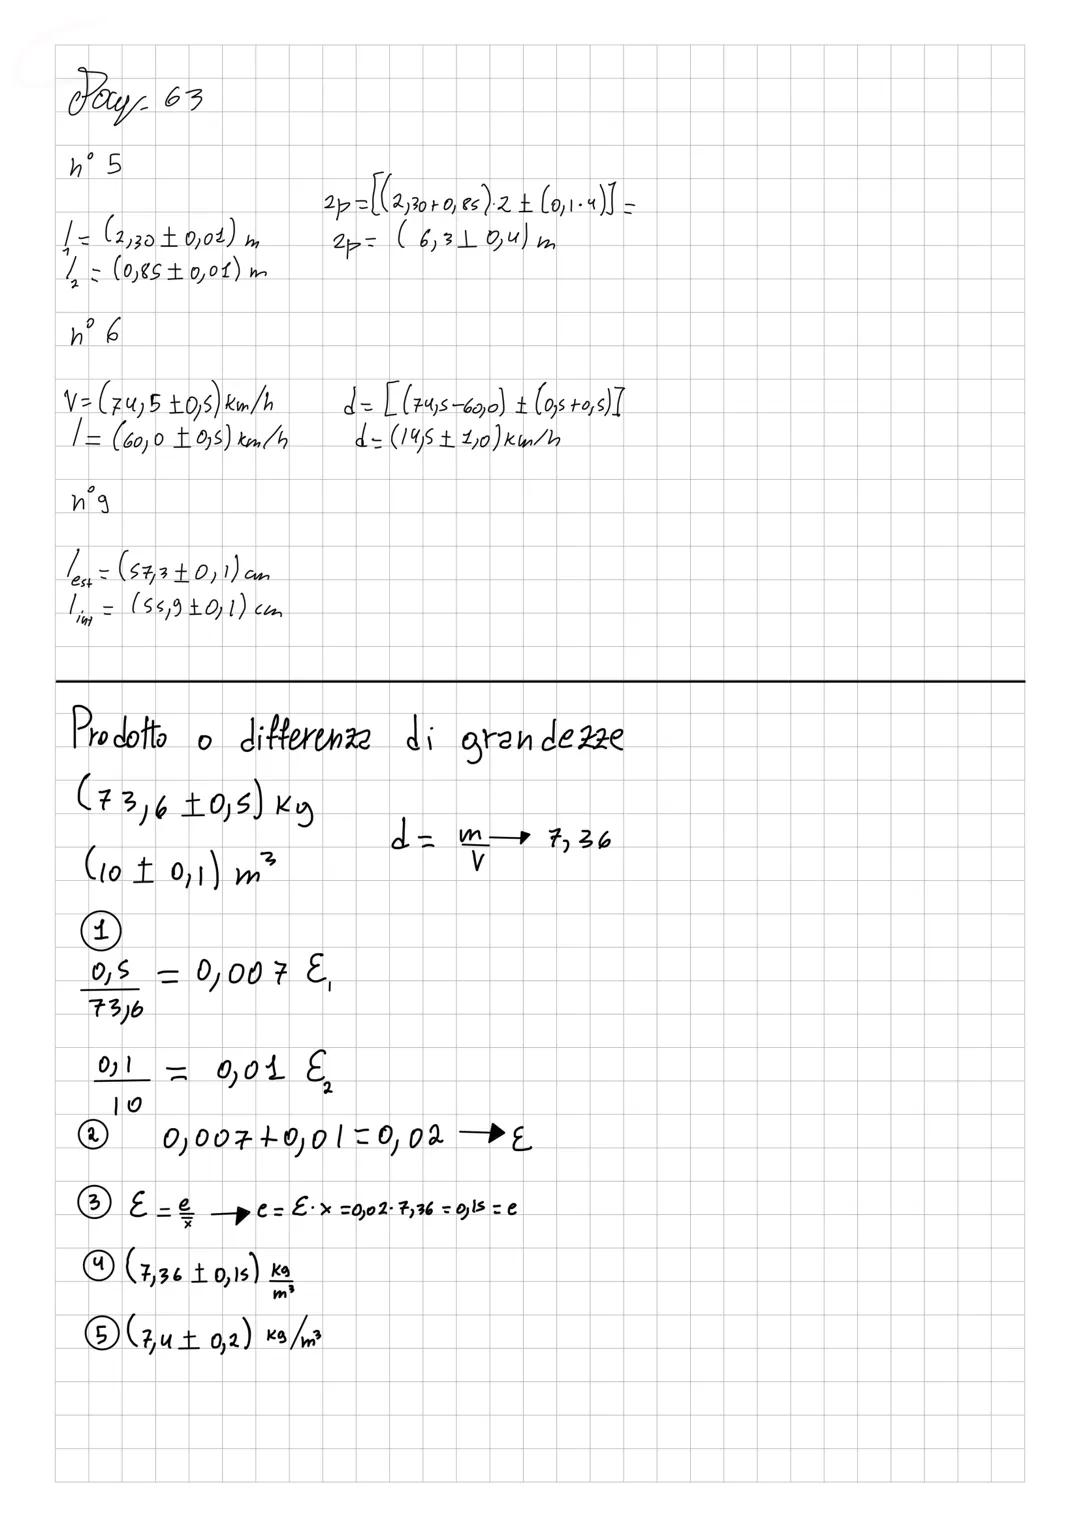 Pag. 63
n° 5
l₁ = (2,30 ± 0,01) m
l₂ = (0,85 ± 0,01) m
2p = [(2,30+0,85)·2 ± (0,1·4)] =
2p = (6,3 ± 0,4) m
n° 6
V = (74,5 ± 0,5) km/h
l = (60,0 ± 0,5) km/h
d = [(74,5-60,0) ± (0,5+0,5)]
d = (14,5 ± 1,0) km/h
n° 9
l est = (57,3 ± 0,1) cm
l int = (55,9 ± 0,1) cm
Prodotto o differenza di grandezze
(73,6 ± 0,5) Kg
(10 ± 0,1) m³
d = m/V → 7,36
①
0,5/73,6 = 0,007 ε₁
0,1/10 = 0,01 ε₂
② 0,007+0,01=0,02 → ε
③ ε = e/x → e = ε·x = 0,02·7,36 = 0,15 = e
④ (7,36 ± 0,15) Kg/m³
⑤ (7,4 ± 0,2) Kg/m³